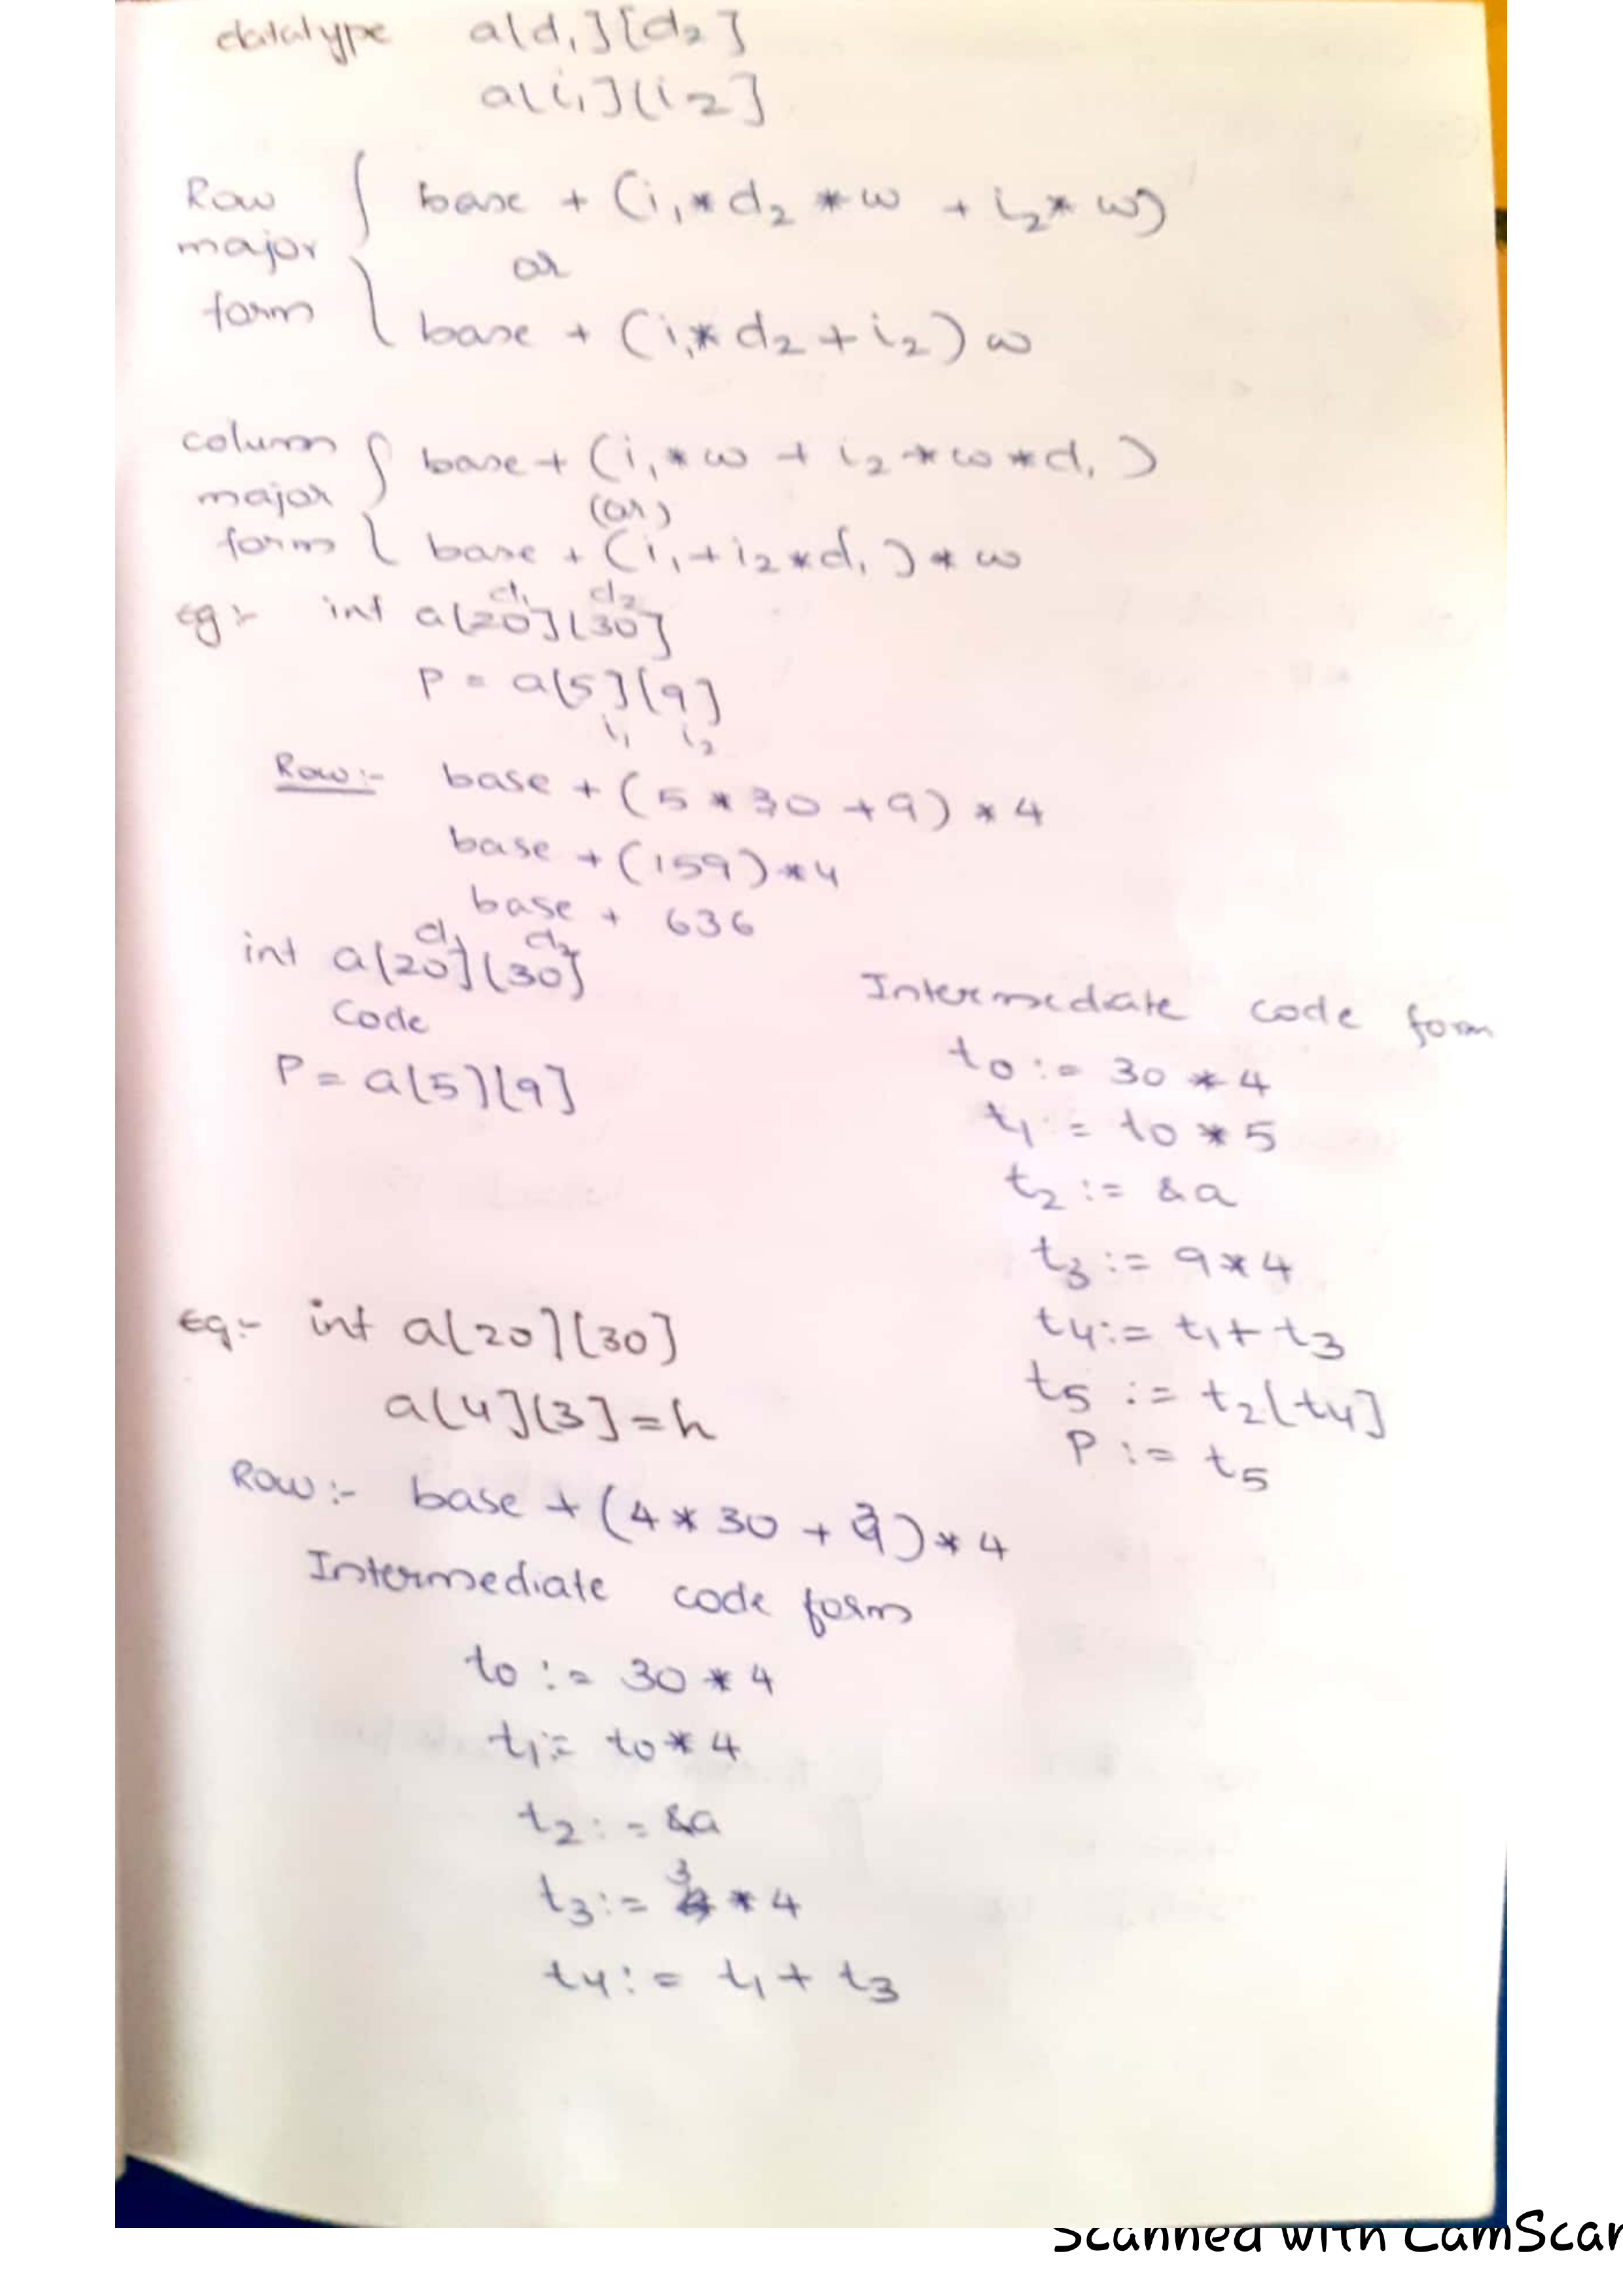 datatype a[d1][d2]
a[i1][i2]
Row major form { base + (i1*d2*w + i2*w)
or
base + (i1*d2+i2)w
column major form { base + (i1*w + i2*w*d1)
(or)
base + (i1+i2*d1)*w
Eg:- int a[20][30]
d1 d2
P = a[5][9]
i1 i2
Row:- base + (5*30+9)*4
base + (159)*4
base + 636
d1 d2
int a[20][30]
Code
P = a[5][9]
Intermediate code form
t0 := 30*4
t1 := t0*5
t2 := &a
t3 := 9*4
t4 := t1+t3
t5 := t2[t4]
P := t5
Eg:- int a[20][30]
a[4][3]=h
Row:- base + (4*30+3)*4
Intermediate code form
t0 := 30*4
t1 := t0*4
t2 := &a
t3 := 3*4
t4 := t1+t3
Scanned with CamScan